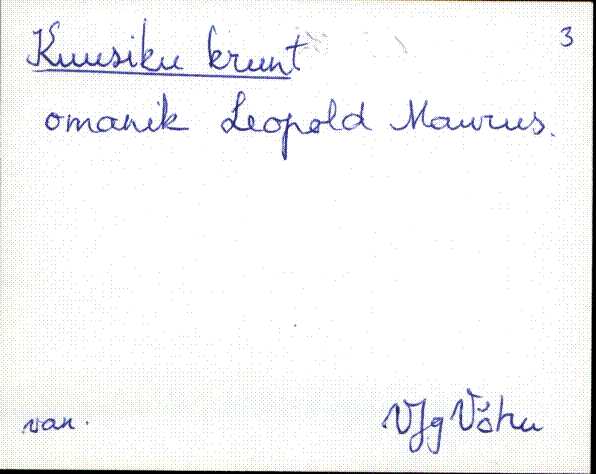 3
Kuusiku krunt
omanik Leopold Maurus.
van.
VJg Võhu